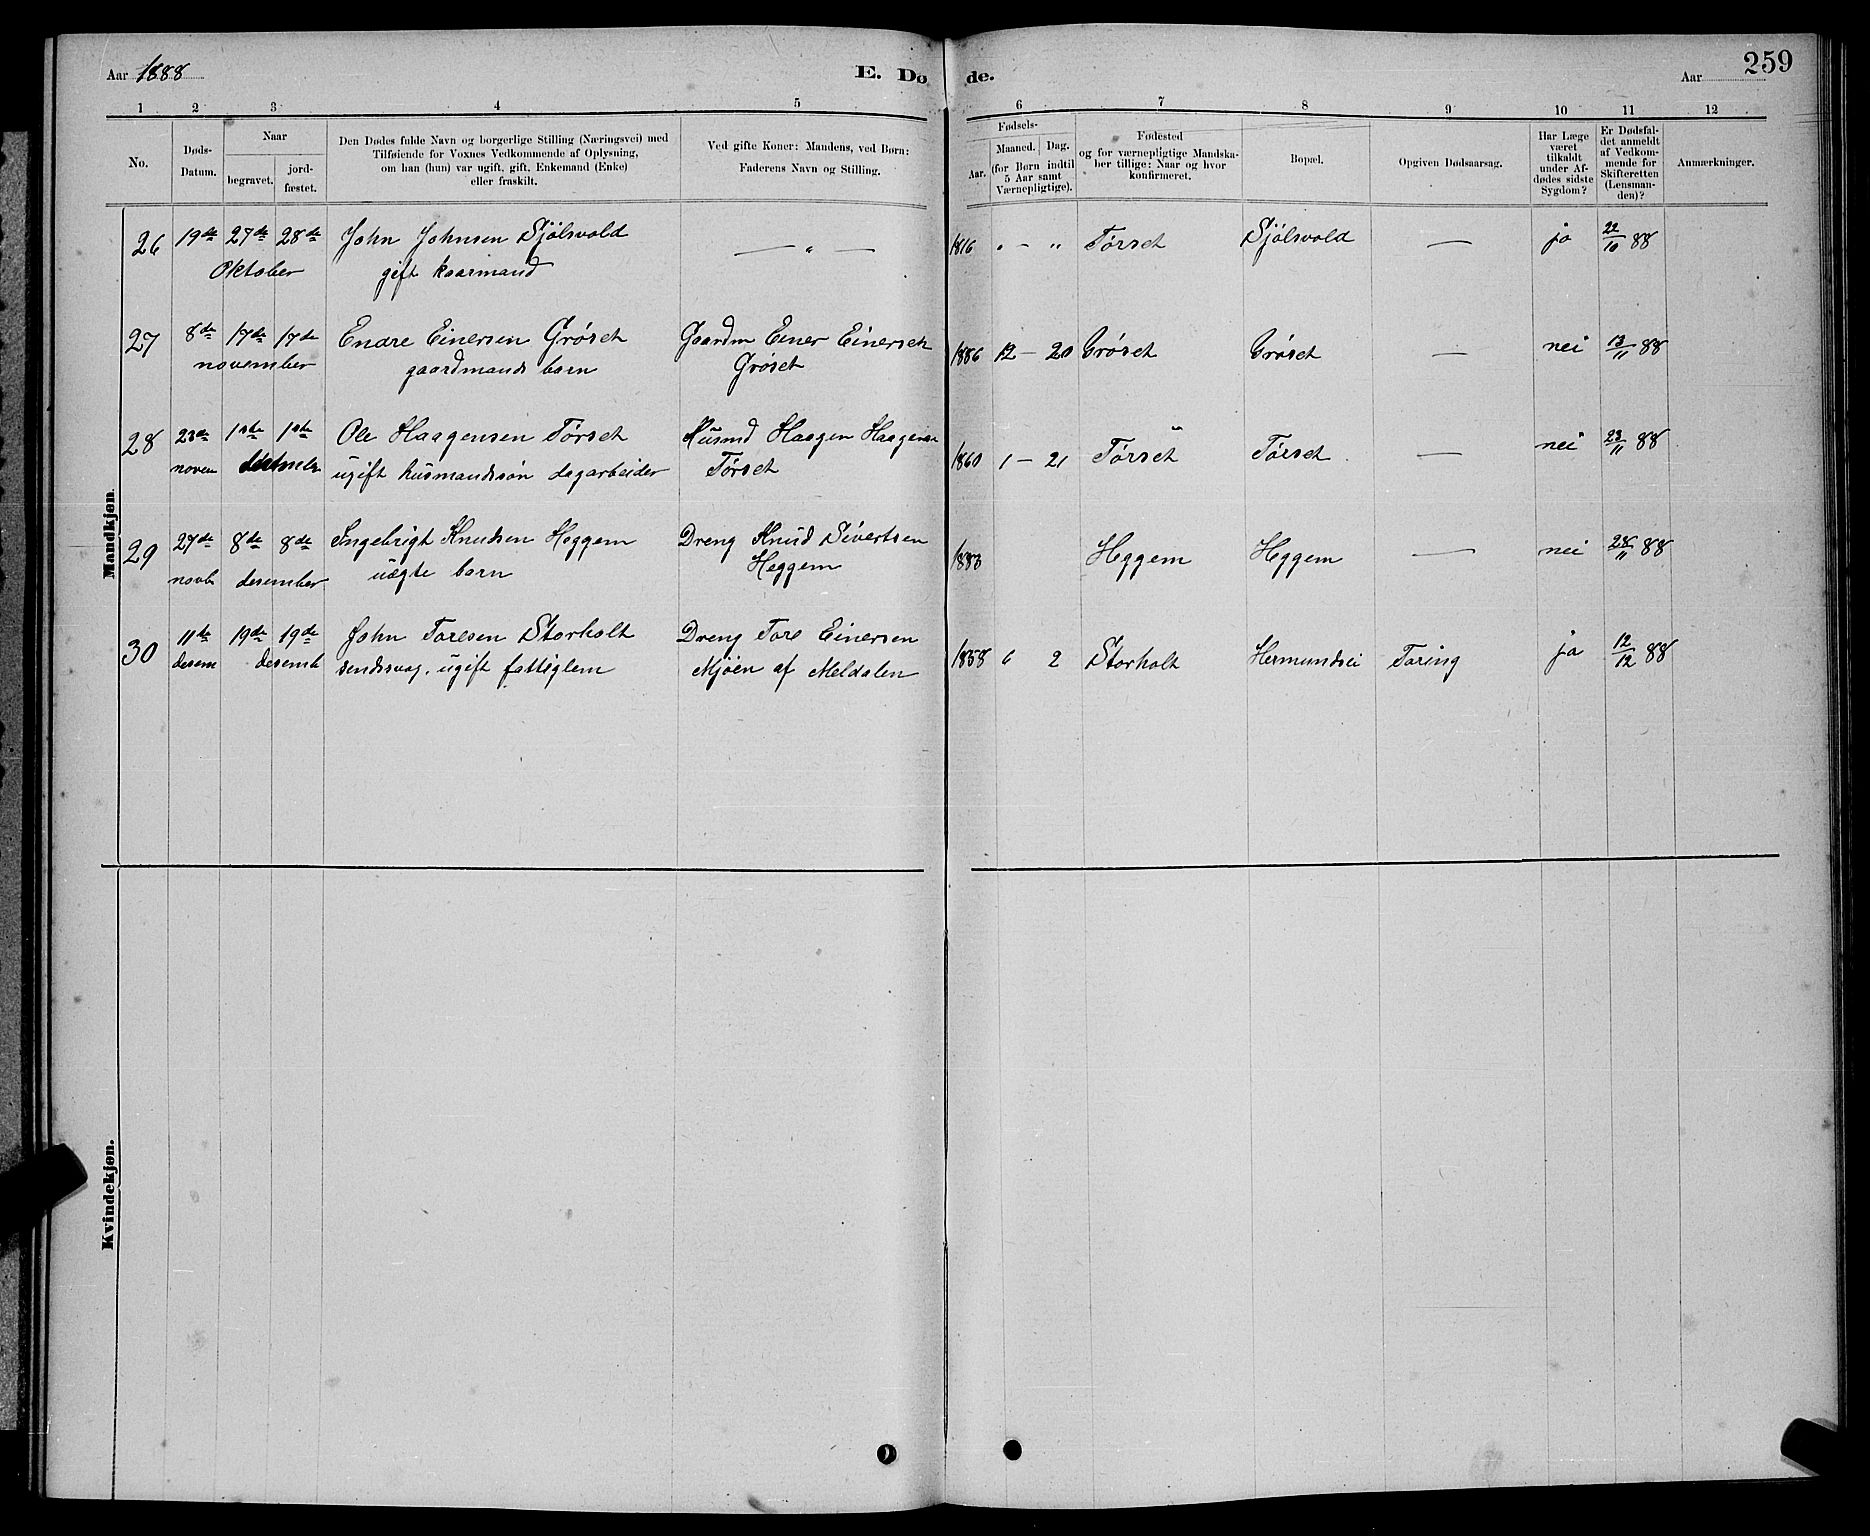 Aar 1888 E. Dø de. Aar 259
1 2 3 4 5 6 7 8 9 10 11 12
No.
Døds-
Datum.
Naar
begravet.
jord-
fæstet.
Den Dødes fulde Navn og borgerlige Stilling (Næringsvei) med
Tilføiende for Voxnes Vedkommende af Oplysning,
om han (hun) var ugift, gift, Enkemand (Enke)
eller fraskilt.
Ved gifte Koner: Mandens, ved Børn:
Faderens Navn og Stilling.
Fødsels-
Aar.
Maaned. Dag.
(for Børn indtil
5 Aar samt
Værnepligtige).
Fødested
og for værnepligtige Mandska-
ber tillige: Naar og hvor
konfirmeret.
Bopæl.
Opgiven Dødsaarsag.
Har Læge
været
tilkaldt
under Af-
dødes sidste
Sygdom?
Er Dødsfal-
det anmeldt
af Vedkom-
mende for
Skifteretten
(Lensman-
den)?
Anmærkninger.
Mandkjøn.
26 19de 27de 28de John Johnsen Sjölsvold — " — 1816 " - " Tørset Sjölsvold — ja 22/10 88
Oktober gift kaarmand
27 8de 17de 17de Endre Einersen Grøset Gaardm Einer Einersen 1886 12 - 20 Grøset Grøset — nei 13/11 88
november gaardmands barn Grøset
28 23de 1ste 1ste Ole Haagensen Tørset Husmd Haagen Haagensen 1860 1 - 21 Tørset Tørset — nei 23/11 88
novem ugift husmandssön dagarbeider Tørset
29 27de 8de 8de Ingebrigt Knudsen Heggem Dreng Knud Sivertsen 1883 Heggem Heggem — nei 28/11 88
novb desember uægte barn Heggem
30 11te 19de 19de John Toresen Storholt Dreng Tore Einersen 1858 6 2 Storholt Hermundsei Tæring ja 12/12 88
desem desemb sindssvag, ugift fattiglem Mjöen af Meldalen
Kvindekjøn.